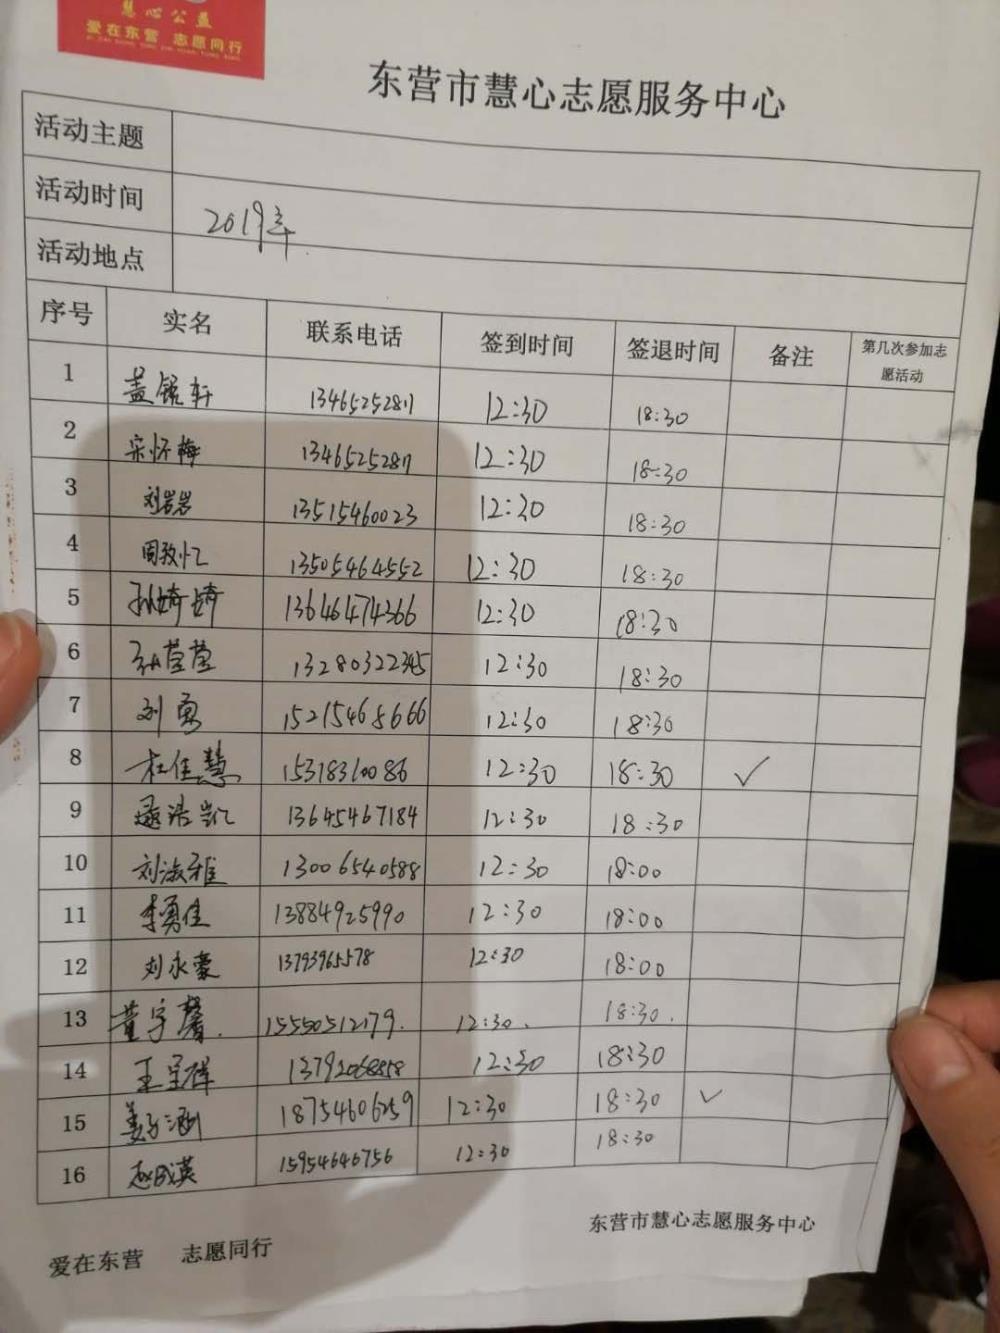 慧心公益
爱在东营 志愿同行
东营市慧心志愿服务中心
活动主题
活动时间 2019年
活动地点
序号 实名 联系电话 签到时间 签退时间 备注 第几次参加志愿活动
1 盖铭轩 13465252811 12:30 18:30
2 宋怀梅 13465252811 12:30 18:30
3 刘岩岩 13515460023 12:30 18:30
4 周致忆 13505464552 12:30 18:30
5 孙婷婷 13646474366 12:30 18:30
6 孙莹莹 13280322345 12:30 18:30
7 刘勇 15215468666 12:30 18:30
8 杜佳慧 15318310086 12:30 18:30 ✓
9 浩凯 13645467184 12:30 18:30
10 刘淑雅 13006540588 12:30 18:00
11 李勇佳 13884925990 12:30 18:00
12 刘永豪 13793965578 12:30 18:00
13 董宇馨. 15550512179. 12:30. 18:30.
14 王呈祥 13792068858 12:30 18:30
15 姜子涵 18754606259 12:30 18:30 ✓
16 赵成英 15954646756 12:30 18:30
东营市慧心志愿服务中心
爱在东营 志愿同行